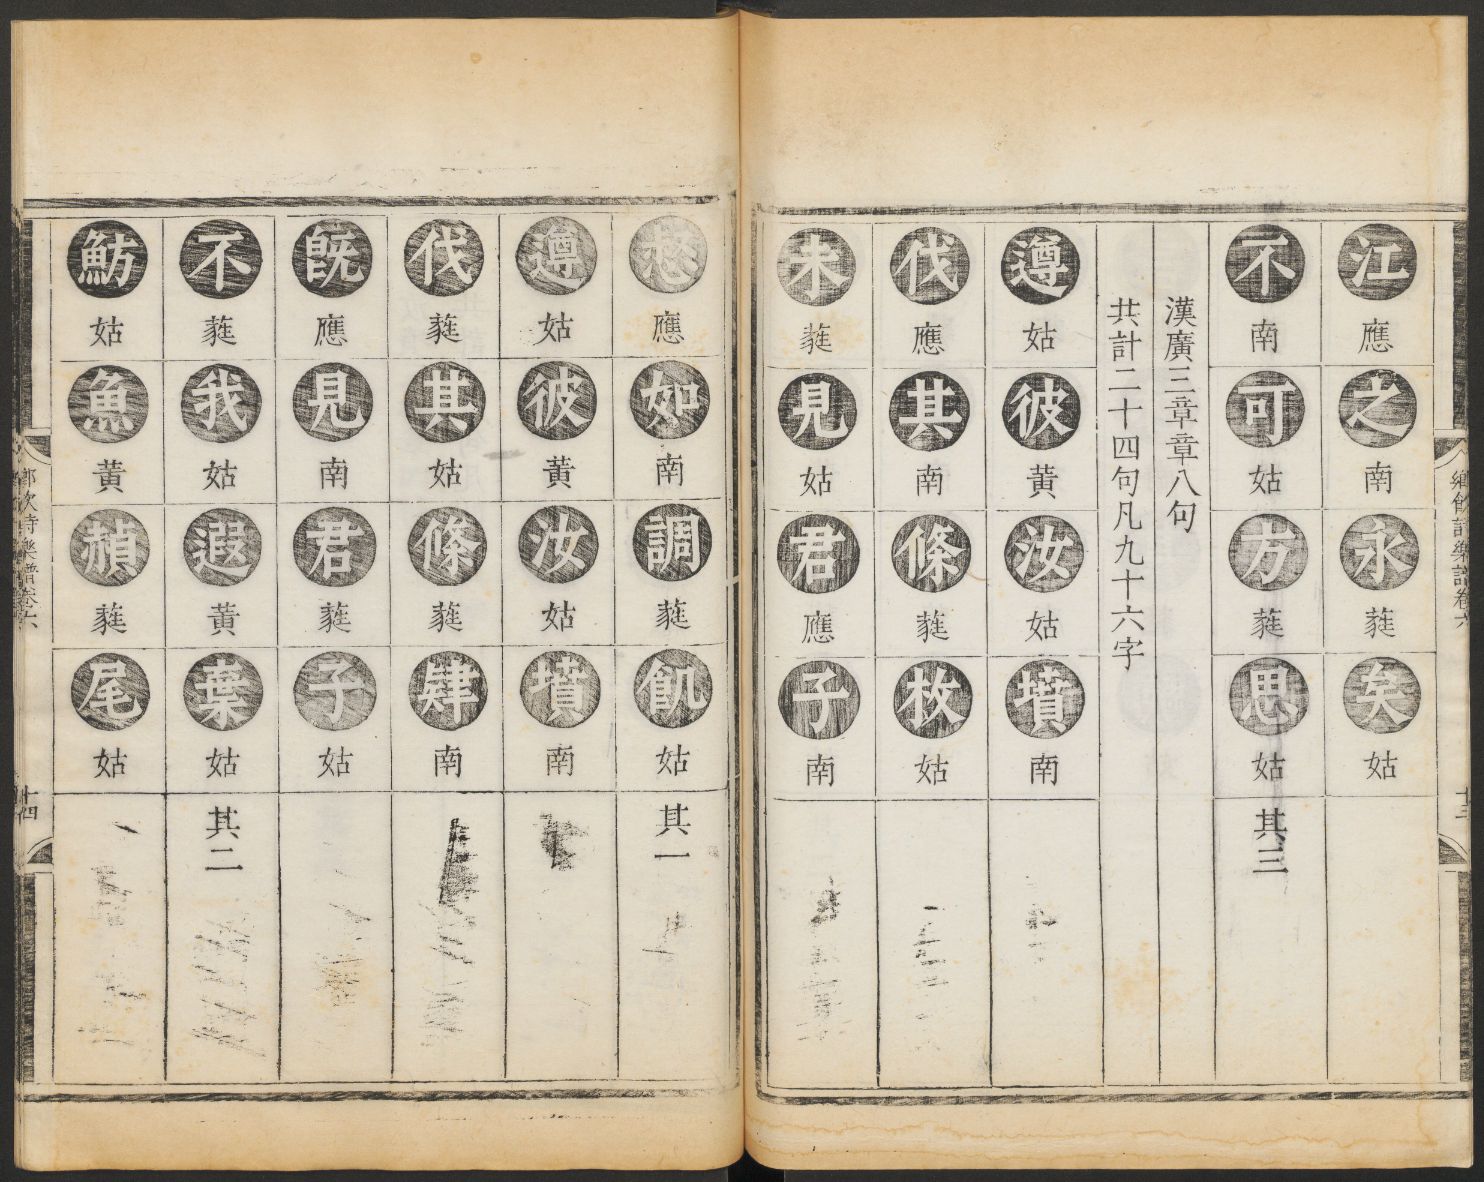 江應之南永蕤矣姑
不南可姑方蕤思姑其三
漢廣三章章八句
共計二十四句凡九十六字
遵姑彼黃汝姑墳南
伐應其南條蕤枚姑
未蕤見姑君應子南
惄應如南調蕤飢姑其一
遵姑彼黃汝姑墳南
伐蕤其姑條蕤肄南
旣應見南君蕤子姑
不蕤我姑遐黃棄姑其二
魴姑魚黃赬蕤尾姑
鄉飲詩樂譜卷六
十三
鄉飲詩樂譜卷六
十四